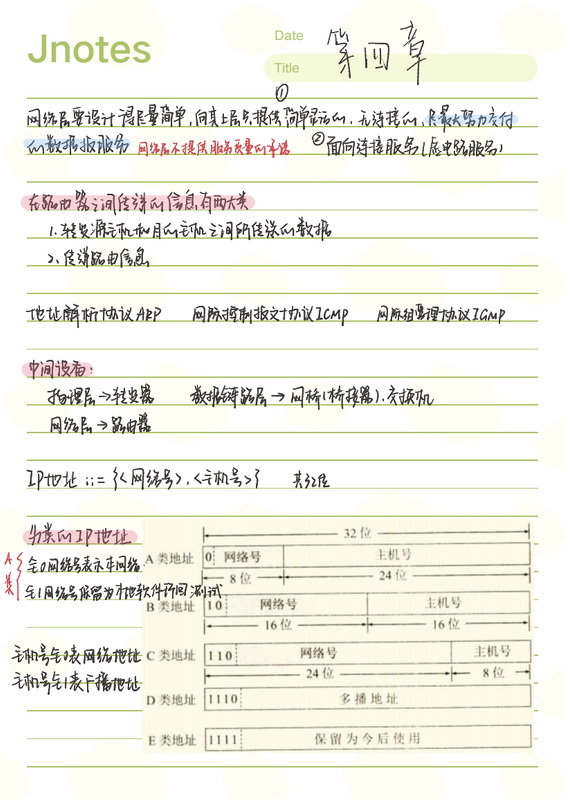 Jnotes
Date
Title
第四章
①
网络层要设计得尽量简单,向其上层只提供简单灵活的、无连接的、尽最大努力交付
的数据报服务 网络层不提供服务质量的承诺 ②面向连接服务(虚电路服务)
在路由器之间传送的信息有两大类
1.转发源主机和目的主机之间所传送的数据
2.传送路由信息
地址解析协议ARP 网际控制报文协议ICMP 网际组管理协议IGMP
中间设备:
物理层→转发器 数据链路层→网桥(桥接器).交换机
网络层→路由器
IP地址 ::= {<网络号>,<主机号>} 共32位
分类的IP地址
32 位
A类
全0网络号表示本网络
A 类地址 0 网络号 主机号
8 位 24 位
全1网络号保留为本地软件环回测试
B 类地址 10 网络号 主机号
16 位 16 位
主机号全0表网络地址
C 类地址 110 网络号 主机号
24 位 8 位
主机号全1表广播地址
D 类地址 1110 多播地址
E 类地址 1111 保留为今后使用